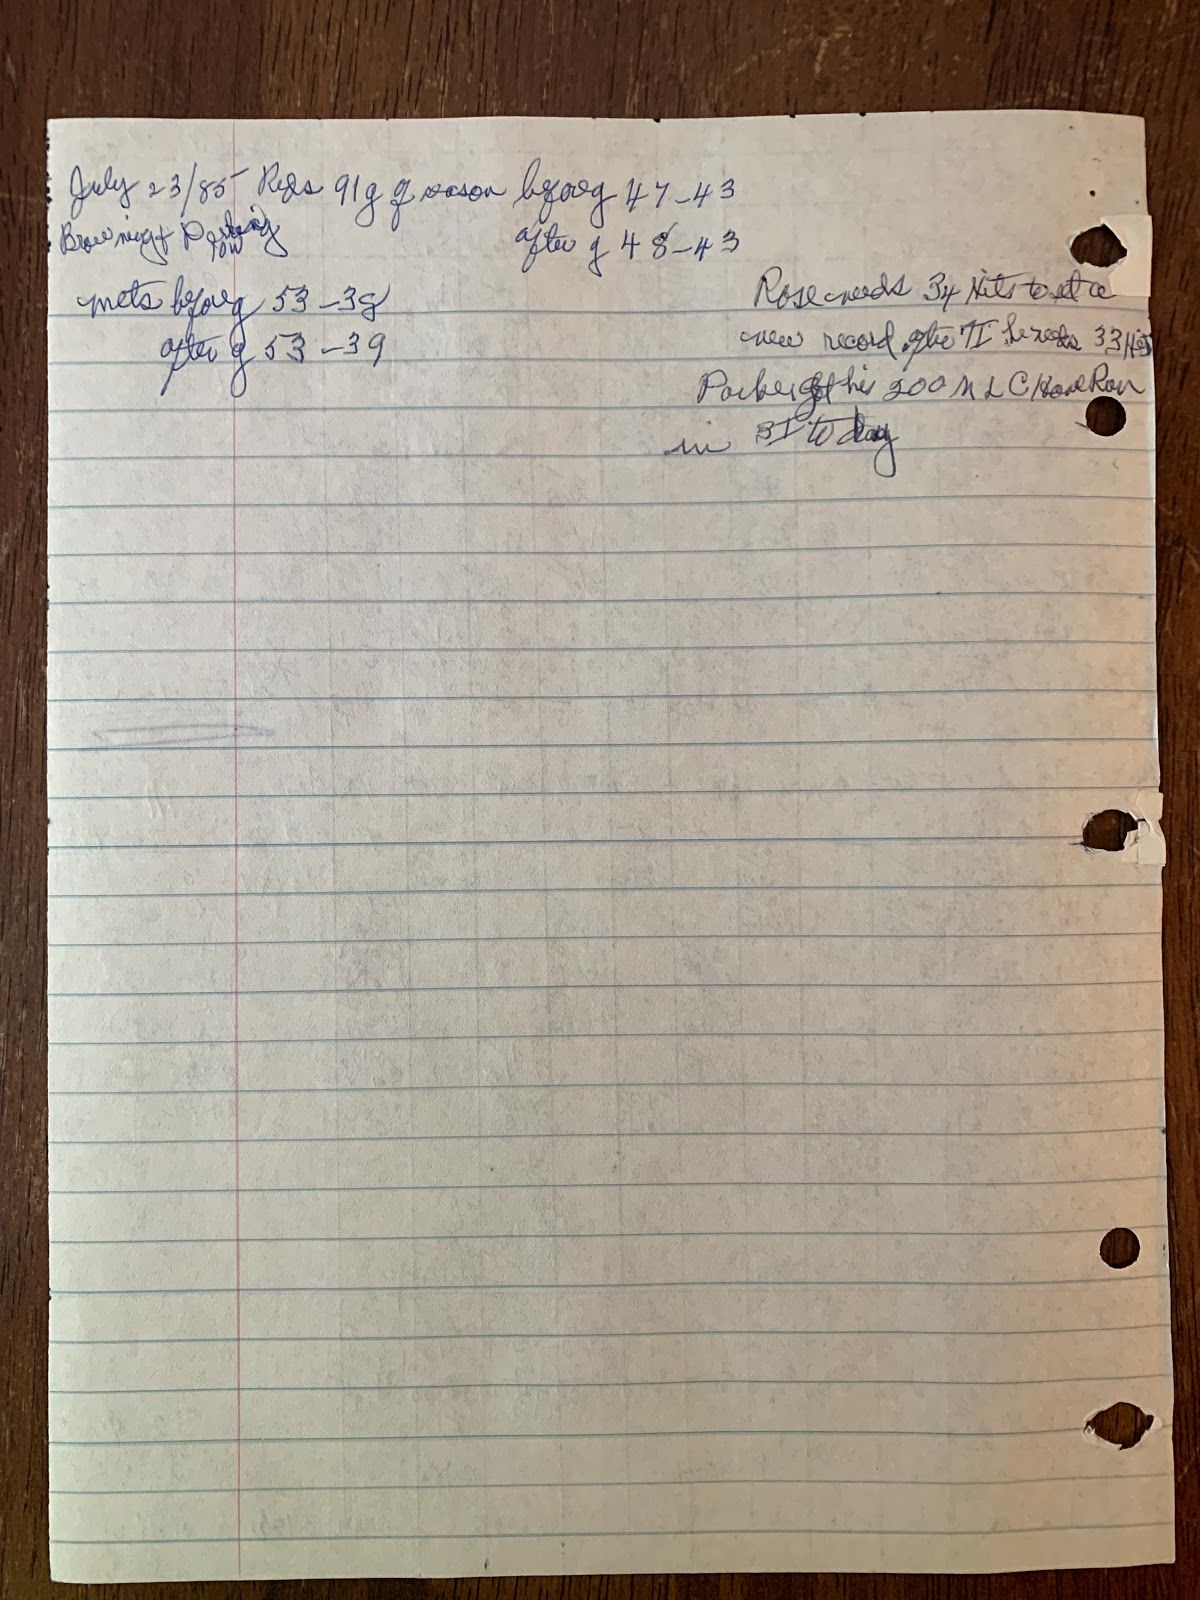 July 23/85 Reds 91g of season before g 47-43
Browning + Darling
after g 48-43
Mets before g 53-38
after g 53-39
Rose needs 34 Hits to set a
new record after 7I he needs 33 Hits
Parker got his 200 M L C Home Run
in 3I today